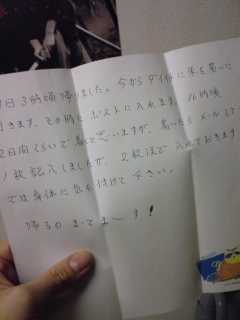 日3時頃帰りました。今からダイエーに米を買いに
行きます。その時にポストに入れます。16時頃
2日間くらいで着くと思いますが、着いたらメールして
1枚記入しましたが、2枚ほど入れておきます
では身体に気を付けて下さい。
帰るの まってま〜す!